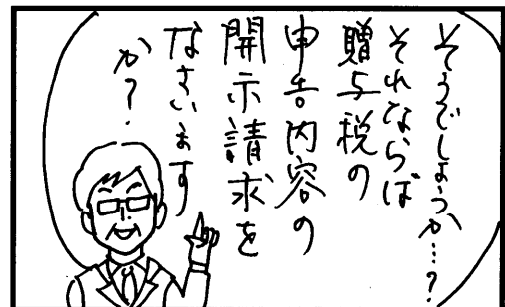 そうでしょうか…?
それならば
贈与税の
申告内容の
開示請求を
なさいます
か?